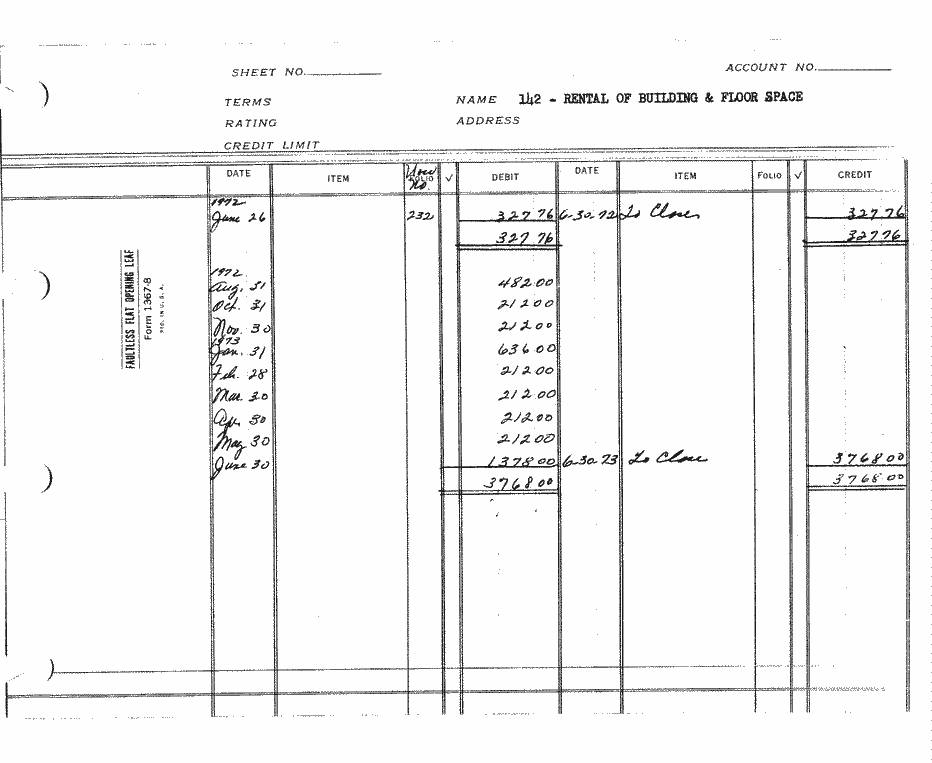 SHEET NO.
ACCOUNT NO.
TERMS
NAME 142 - RENTAL OF BUILDING & FLOOR SPACE
RATING
ADDRESS
CREDIT LIMIT
DATE ITEM FOLIO No. √ DEBIT DATE ITEM FOLIO √ CREDIT
1972
June 26 232 327 76 6-30-72 To Close 327 76
327 76 327 76
1972
Aug. 31 482 00
Oct. 31 212 00
Nov. 30 212 00
1973
Jan. 31 636 00
Feb. 28 212 00
Mar. 30 212 00
Apr. 30 212 00
May 30 212 00
June 30 1378 00 6-30-73 To Close 3768 00
3768 00 3768 00
FAULTLESS FLAT OPENING LEAF
Form 1367-8
PTD. IN U. S. A.